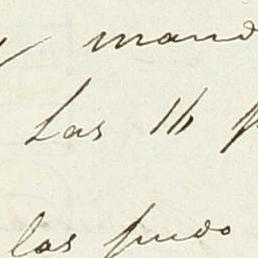 y mand
Las 16 p
las pudo